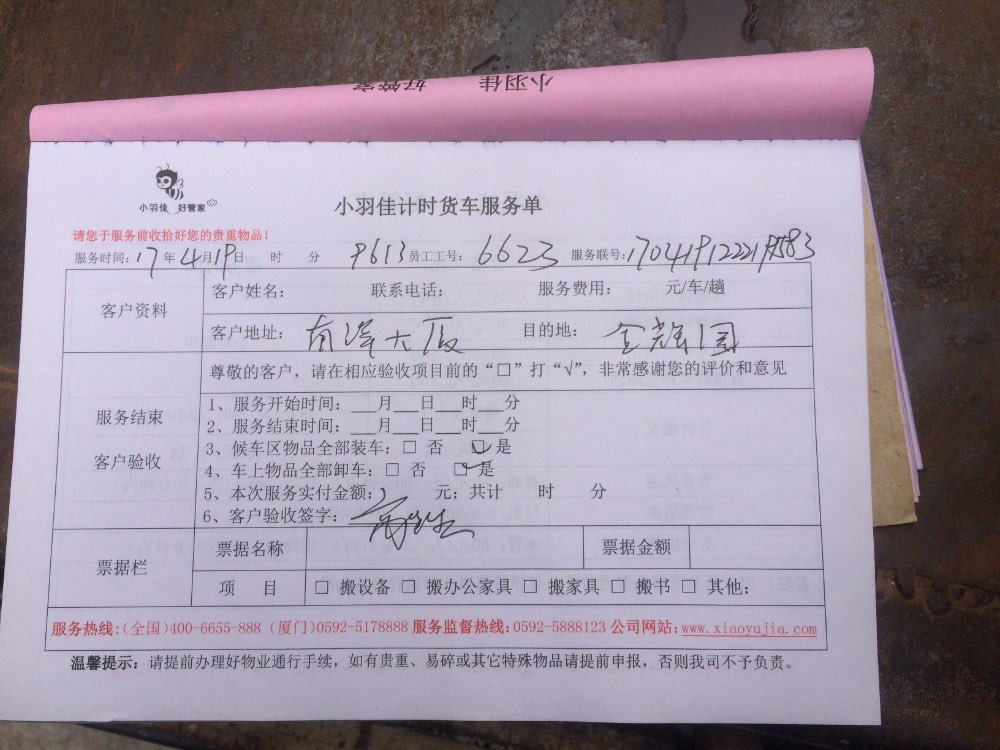 小羽佳 好管家
小羽佳 好管家
小羽佳计时货车服务单
请您于服务前收拾好您的贵重物品！
服务时间：17年4月19日 时 分 9613 员工工号：6623 服务联号：
客户资料
客户姓名： 联系电话： 服务费用： 元/车/趟
客户地址： 大厦 目的地：
尊敬的客户，请在相应验收项目前的“□”打“√”，非常感谢您的评价和意见
服务结束
客户验收
1、服务开始时间：___月___日___时___分
2、服务结束时间：___月___日___时___分
3、候车区物品全部装车：□ 否 ☑ 是
4、车上物品全部卸车：□ 否 ☑ 是
5、本次服务实付金额： 元；共计 时 分
6、客户验收签字：
票据栏
票据名称 票据金额
项 目 □ 搬设备 □ 搬办公家具 □ 搬家具 □ 搬书 □ 其他：
服务热线:(全国)400-6655-888 (厦门)0592-5178888 服务监督热线:0592-5888123 公司网站:www.xiaoyujia.com
温馨提示：请提前办理好物业通行手续，如有贵重、易碎或其它特殊物品请提前申报，否则我司不予负责。